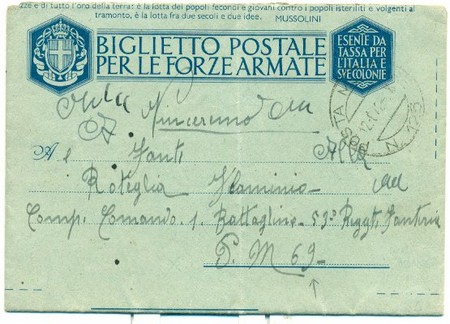 zze e di tutto l'oro della terra: è la lotta dei popoli fecondi e giovani contro i popoli isteriliti e volgenti al
tramonto, è la lotta fra due secoli e due idee. MUSSOLINI
BIGLIETTO POSTALE
PER LE FORZE ARMATE
ESENTE DA
TASSA PER
L'ITALIA E
SVE COLONIE
POSTA M
N. 123
Vinceremo
Al Fanti
Roteglia Flaminio
Comp. Comando. 1. Battaglione - 53º Reggt. Fanteria
P. M 69